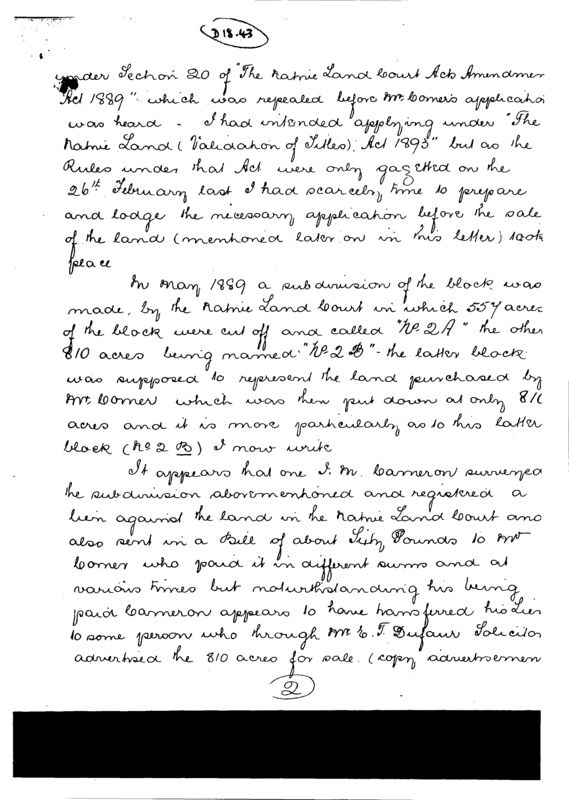 D 18.43
under Section 20 of "The Native Land Court Acts Amendmen
Act 1889" which was repealed before Mr Comer's applicatio
was heard - I had intended applying under "The
Native Land (Validation of Titles) Act 1893" but as the
Rules under that Act were only gazetted on the
26th February last I had scarcely time to prepare
and lodge the necessary application before the sale
of the land (mentioned later on in this letter) took
place
In May 1889 a subdivision of the block was
made, by the Native Land Court in which 557 acres
of the block were cut off and called "No. 2A" the other
810 acres being named "No. 2 B" - the latter block
was supposed to represent the land purchased by
Mr. Comer which was then put down at only 810
acres and it is more particularly as to this latter
block (No 2 B) I now write
It appears that one I. M. Cameron surveyed
the subdivision abovementioned and registered a
lien against the land in the Native Land Court and
also sent in a Bill of about Sixty Pounds to Mr
Comer who paid it in different sums and at
various times but notwithstanding his being
paid Cameron appears to have transferred his Lien
to some person who through Mr E. T. Dufaur Solicitor
advertised the 810 acres for sale. (copy advertisemen
2